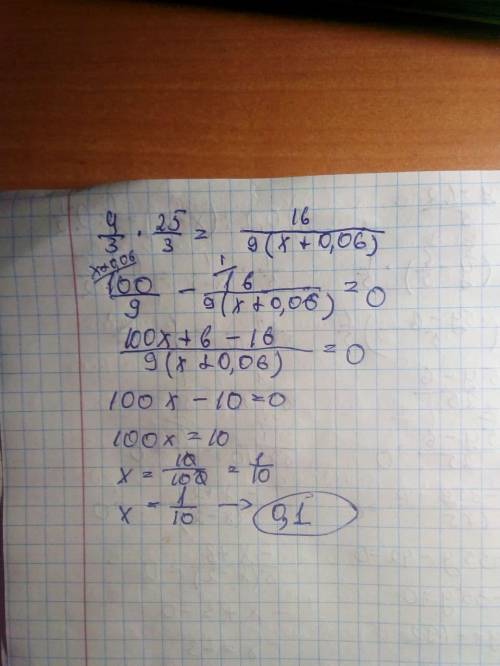 4/3 · 25/3 = 16/9(x+0,06)
x+0,06
100/9 - 1 16/9(x+0,06) = 0
100x+6-16/9(x+0,06) = 0
100x-10=0
100x=10
x = 10/100 = 1/10
x = 1/10 → 0,1